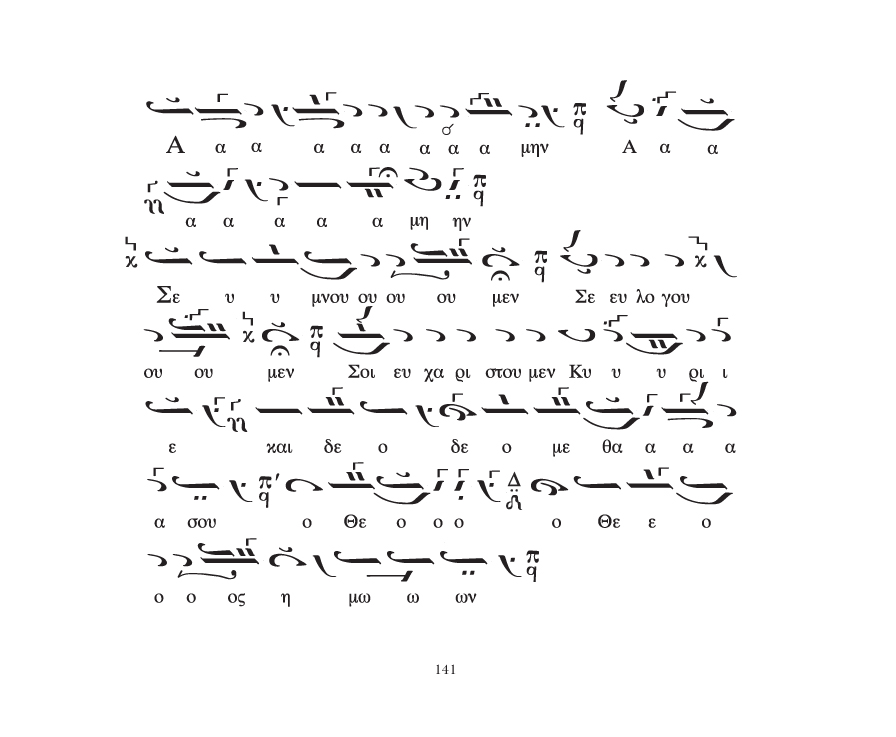 Α α α α α α α α α μην Α α α
α α α α α μη ην
Σε υ υ μνου ου ου ου μεν Σε ευ λο γου
ου ου μεν Σοι ευ χα ρι στου μεν Κυ υ υ ρι ι
ε και δε ο δε ο με θα α α α
α σου ο Θε ο ο ο ο Θε ε ο
ο ο ος η μω ω ων
141